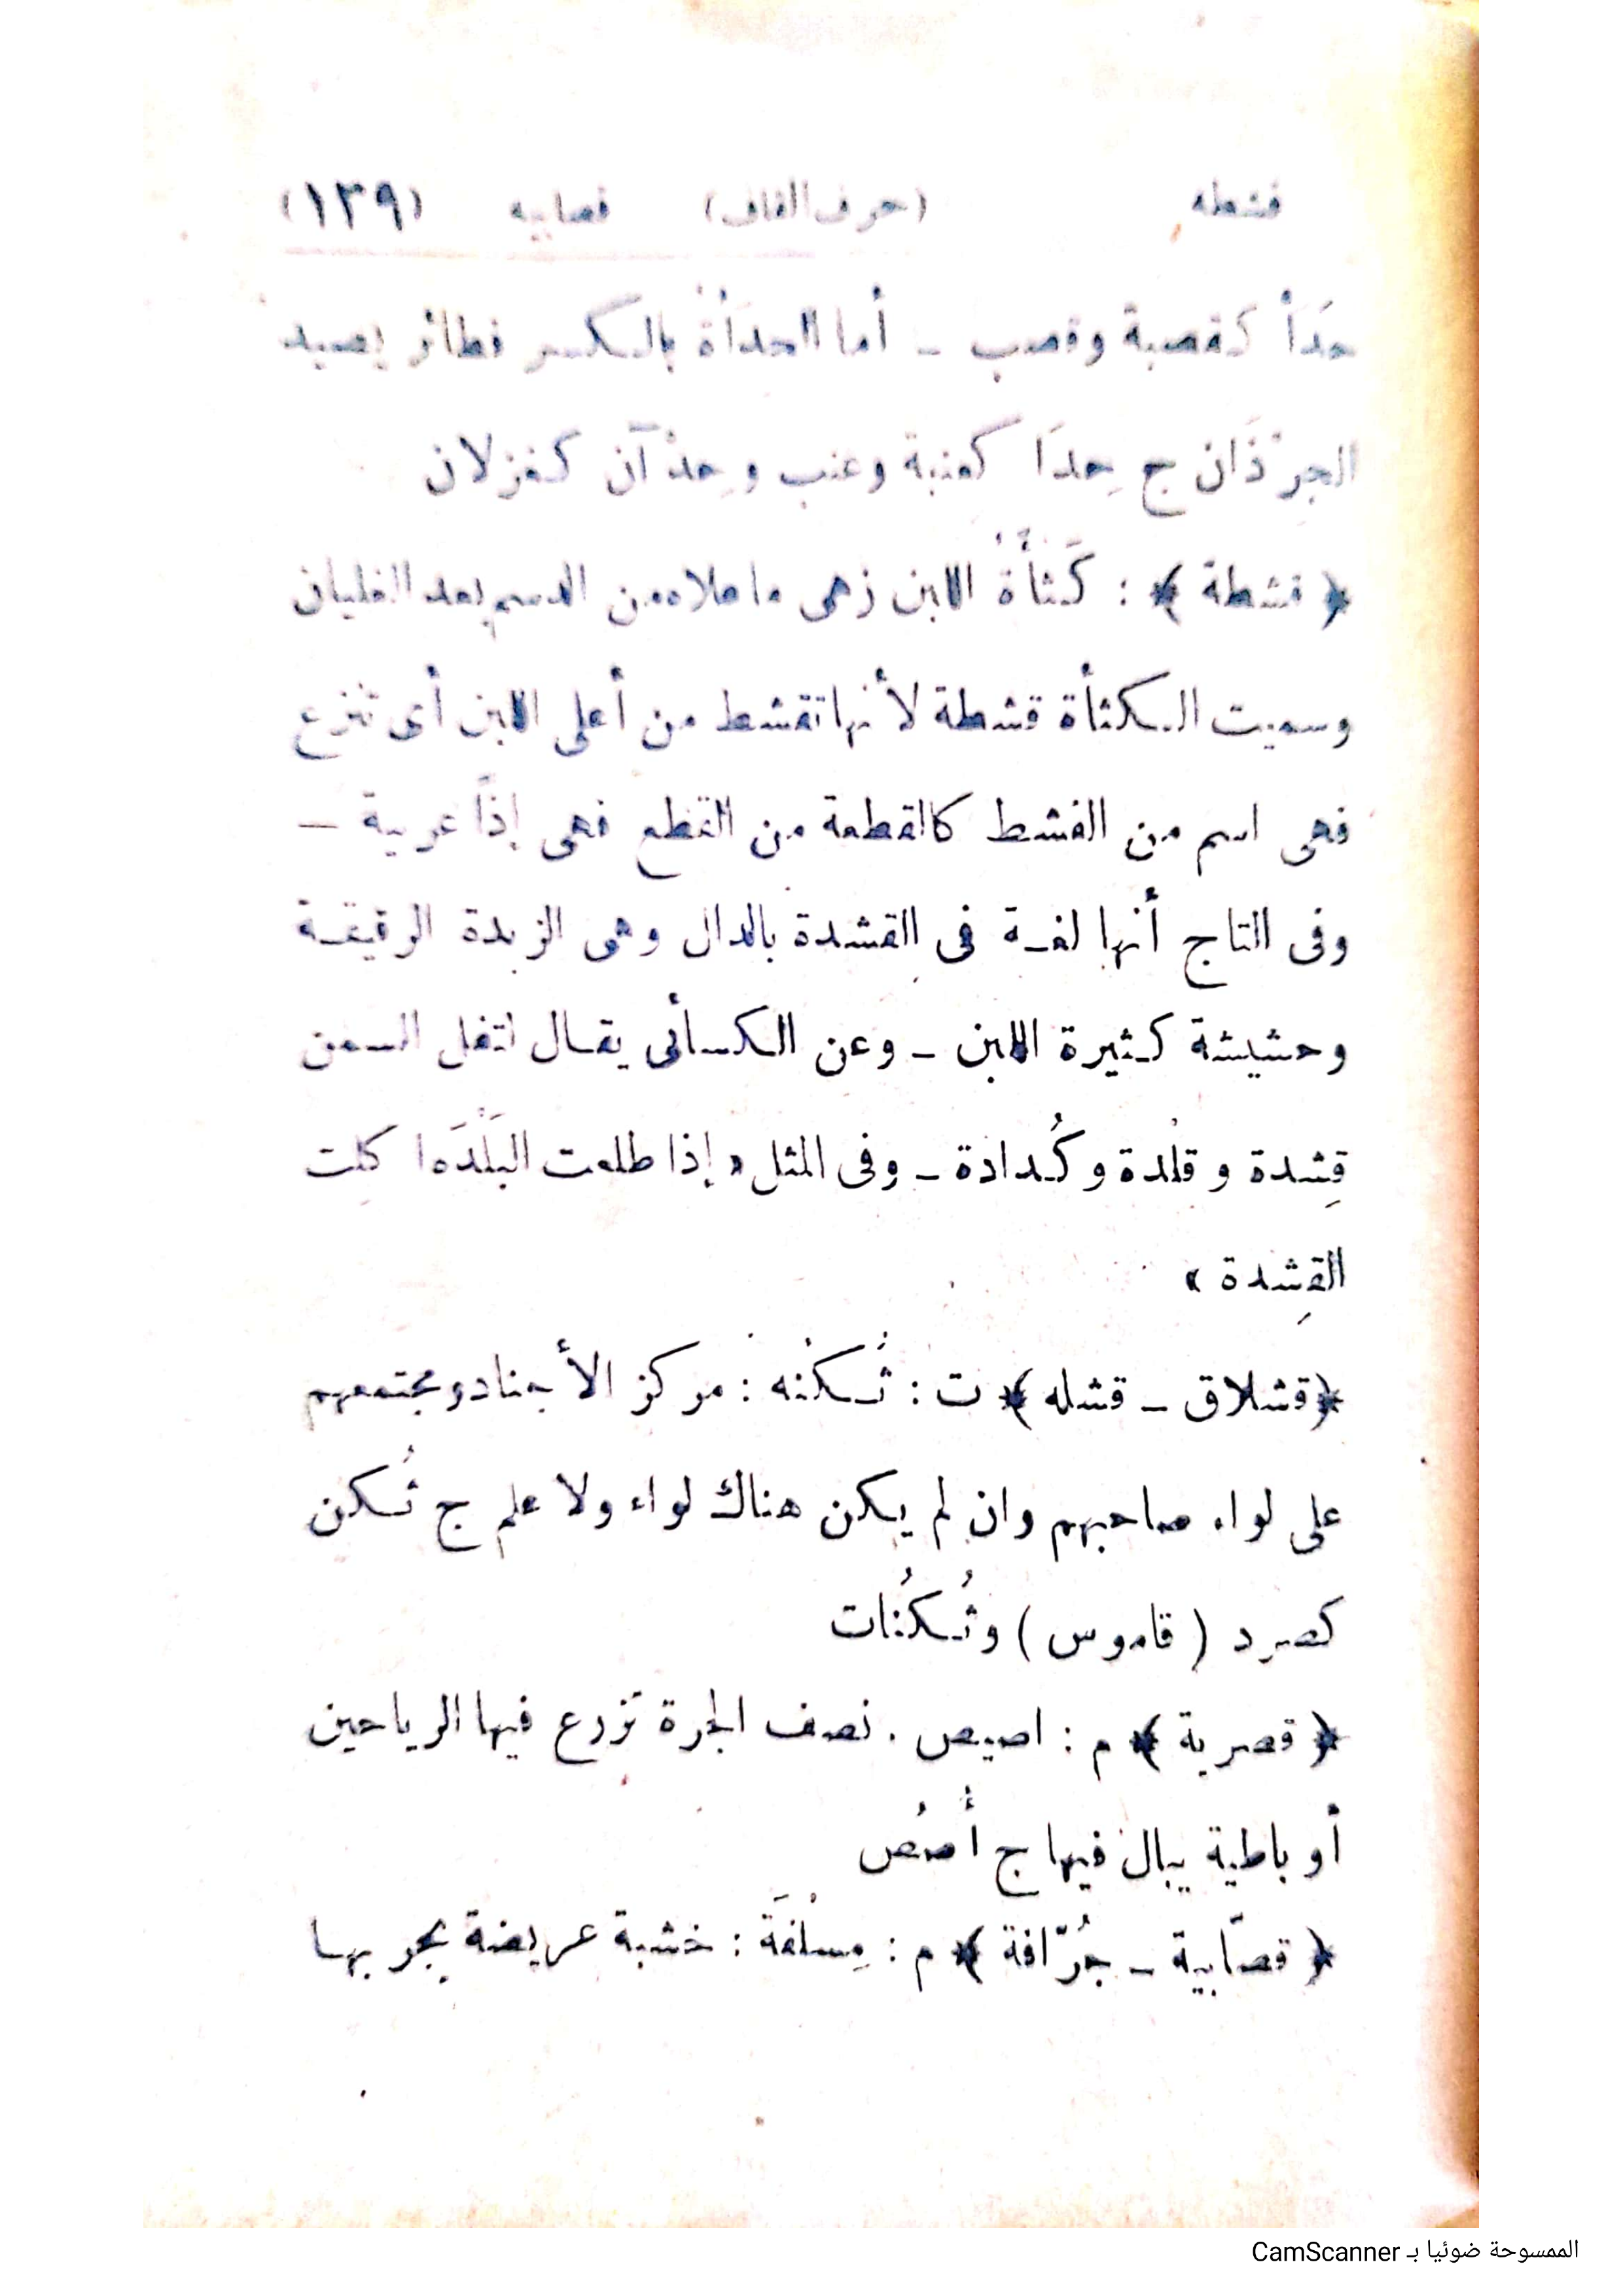 قشطه (حرف القاف) قصابيه (١٣٩)
حَدَأ كقصبة وقصب ـ أما الحدَأة بالكسر فطائر يصيد
الجِرْذَان ج حِدَا كعنبة وعنب وحِدْآن كغزلان
﴿ قشطة ﴾ : كَثْأَةُ اللبن وهى ما علاه من الدسم بعد الغليان
وسميت الكثأة قشطة لأنها تقشط من أعلى اللبن أى تنزع
فهى اسم من القشط كالقطعة من القطع فهى إذاً عربية ـ
وفى التاج أنها لغة فى القشدة بالدال وهى الزبدة الرقيقة
وحشيشة كثيرة اللبن ـ وعن الكسائى يقال لثفل السمن
قِشدة وقلْدة وكُدادة ـ وفى المثل « إذا طلعت البَلْدَه ا كلت
القِشدة »
﴿قشلاق ـ قشله﴾ ت : ثُكْنه : مركز الأجناد ومجتمعهم
على لواء صاحبهم وان لم يكن هناك لواء ولا علم ج ثُكن
كصرد ( قاموس ) وثُكُنات
﴿ قصرية ﴾ م : اصيص . نصف الجرة تزرع فيها الرياحين
أو باطية يبال فيها ج أُصُص
﴿ قصّابية ـ جُرّافة ﴾ م : مِسْلفَة : خشبة عريضة يجر بها
الممسوحة ضوئيا بـ CamScanner